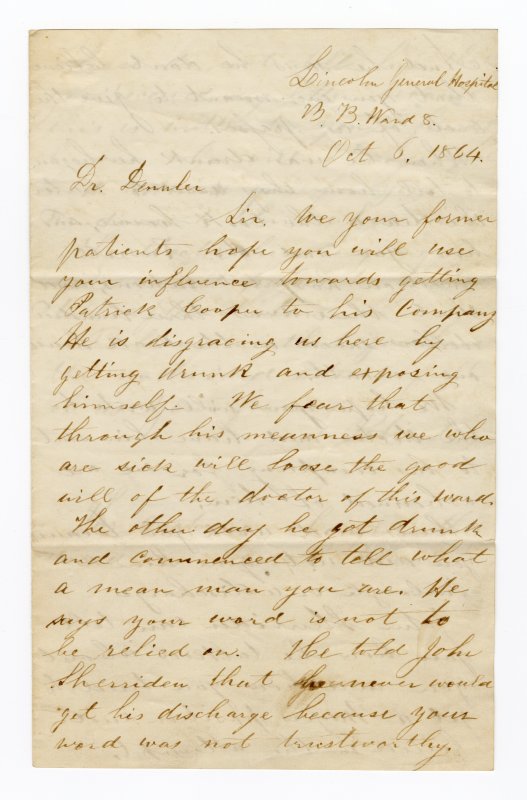 Lincoln General Hospital
B. B. Ward 8.
Oct 6. 1864.
Dr.
Sir. We your former
patients hope you will use
your influence towards getting
Patrick Cooper to his Company
He is disgracing us here by
getting drunk and exposing
himself. We fear that
through his meanness we who
are sick will loose the good
will of the doctor of this ward.
The other day he got drunk
and commenced to tell what
a mean man you are. He
says your word is not to
be relied on. He told John
Sherriden that he never would
get his discharge because your
word was not trustworthy.